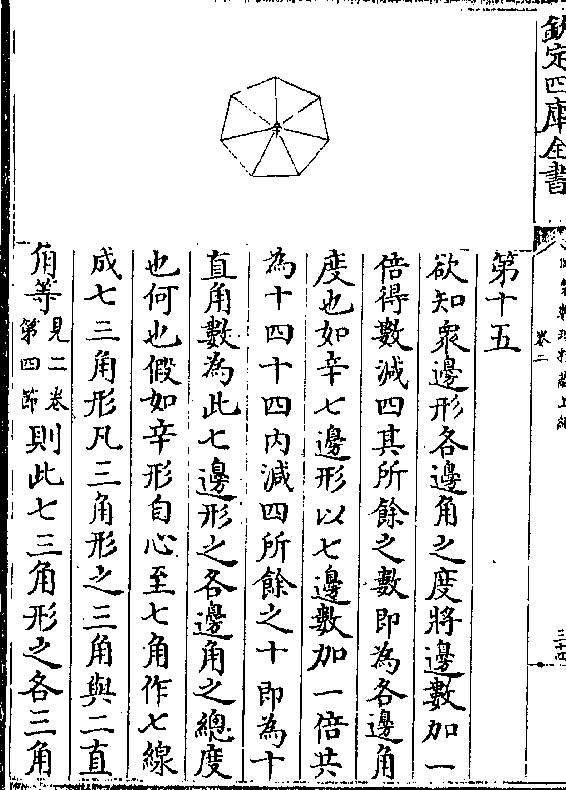 欽定四庫全書
卷二
三十四
辛
第十五
欲知衆邊形各邊角之度將邊數加一
倍得數減四其所餘之數即為各邊角
度也如辛七邊形以七邊數加一倍共
為十四十四内減四所餘之十即為十
直角數為此七邊形之各邊角之總度
也何也假如辛形自心至七角作七線
成七三角形凡三角形之三角與二直
角等見二卷第四節則此七三角形之各三角